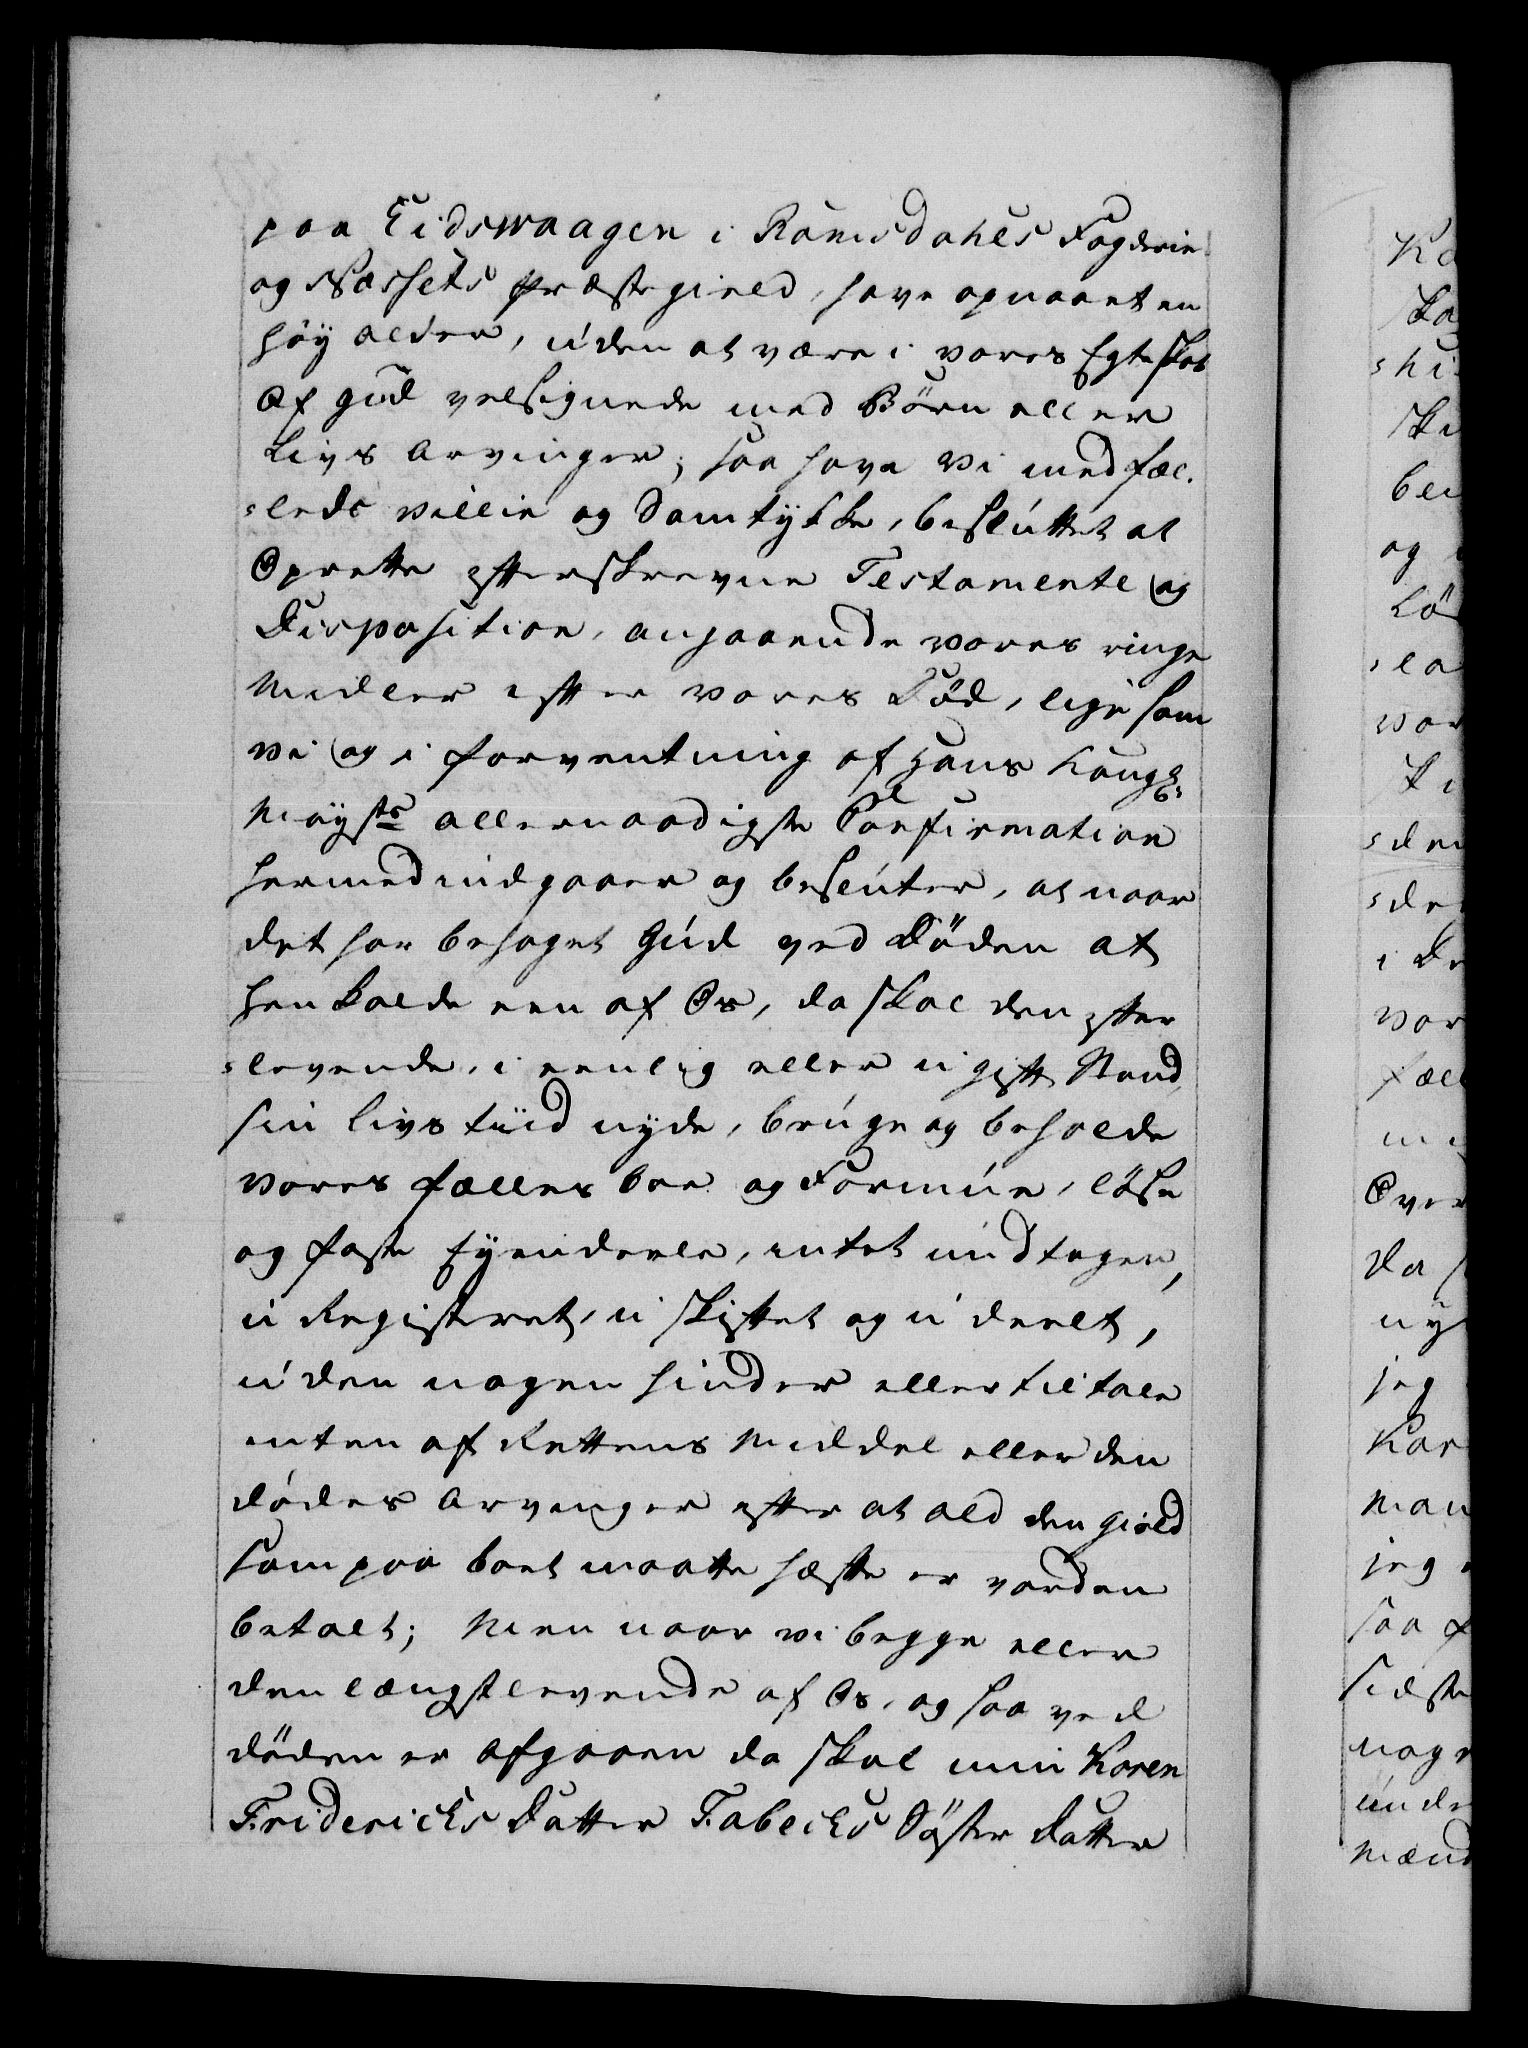 paa Eidswaagen i Romsdahls Fogderie
og Næssets Præstegield, have opnaaet en
höy alder, uden at være i vores Egteskab
af gud velsignede med Börn eller
Livs Arvinger; saa have Vi med fæl-
leds villie og Samtÿkke, besluttet at
Oprette efterskrevne Testamente og
Disposition, angaaende vores ringe
Midler efter vores Död, lige som
vi og i forventning af Hans Kongl:
Mayst:s allernaadigste Confirmation
hermed indgaaer og besluter, at naar
det har behaget Gud ved Döden at
henkalde een af Os, da skal den efter
levende, i eenlig eller ugift Stand,
sin livs tiid nyde, bruge og beholde
vores fælles boe og Formue, löse
og faste Eyendeele, intet undtagen,
u Registeret, u skiftet og u deelt,
uden nogen hinder eller tiltale
enten af Rettens Middel eller den
dödes Arvinger efter at ald den Giæld
som paa boet maatte hæfte er vorden
betalt; Men naar vi begge eller
den længstlevende af Os, og saa ved
döden er afgaaen da skal min Karen
Friderichs Datter Fabechs Söster Datter
Over